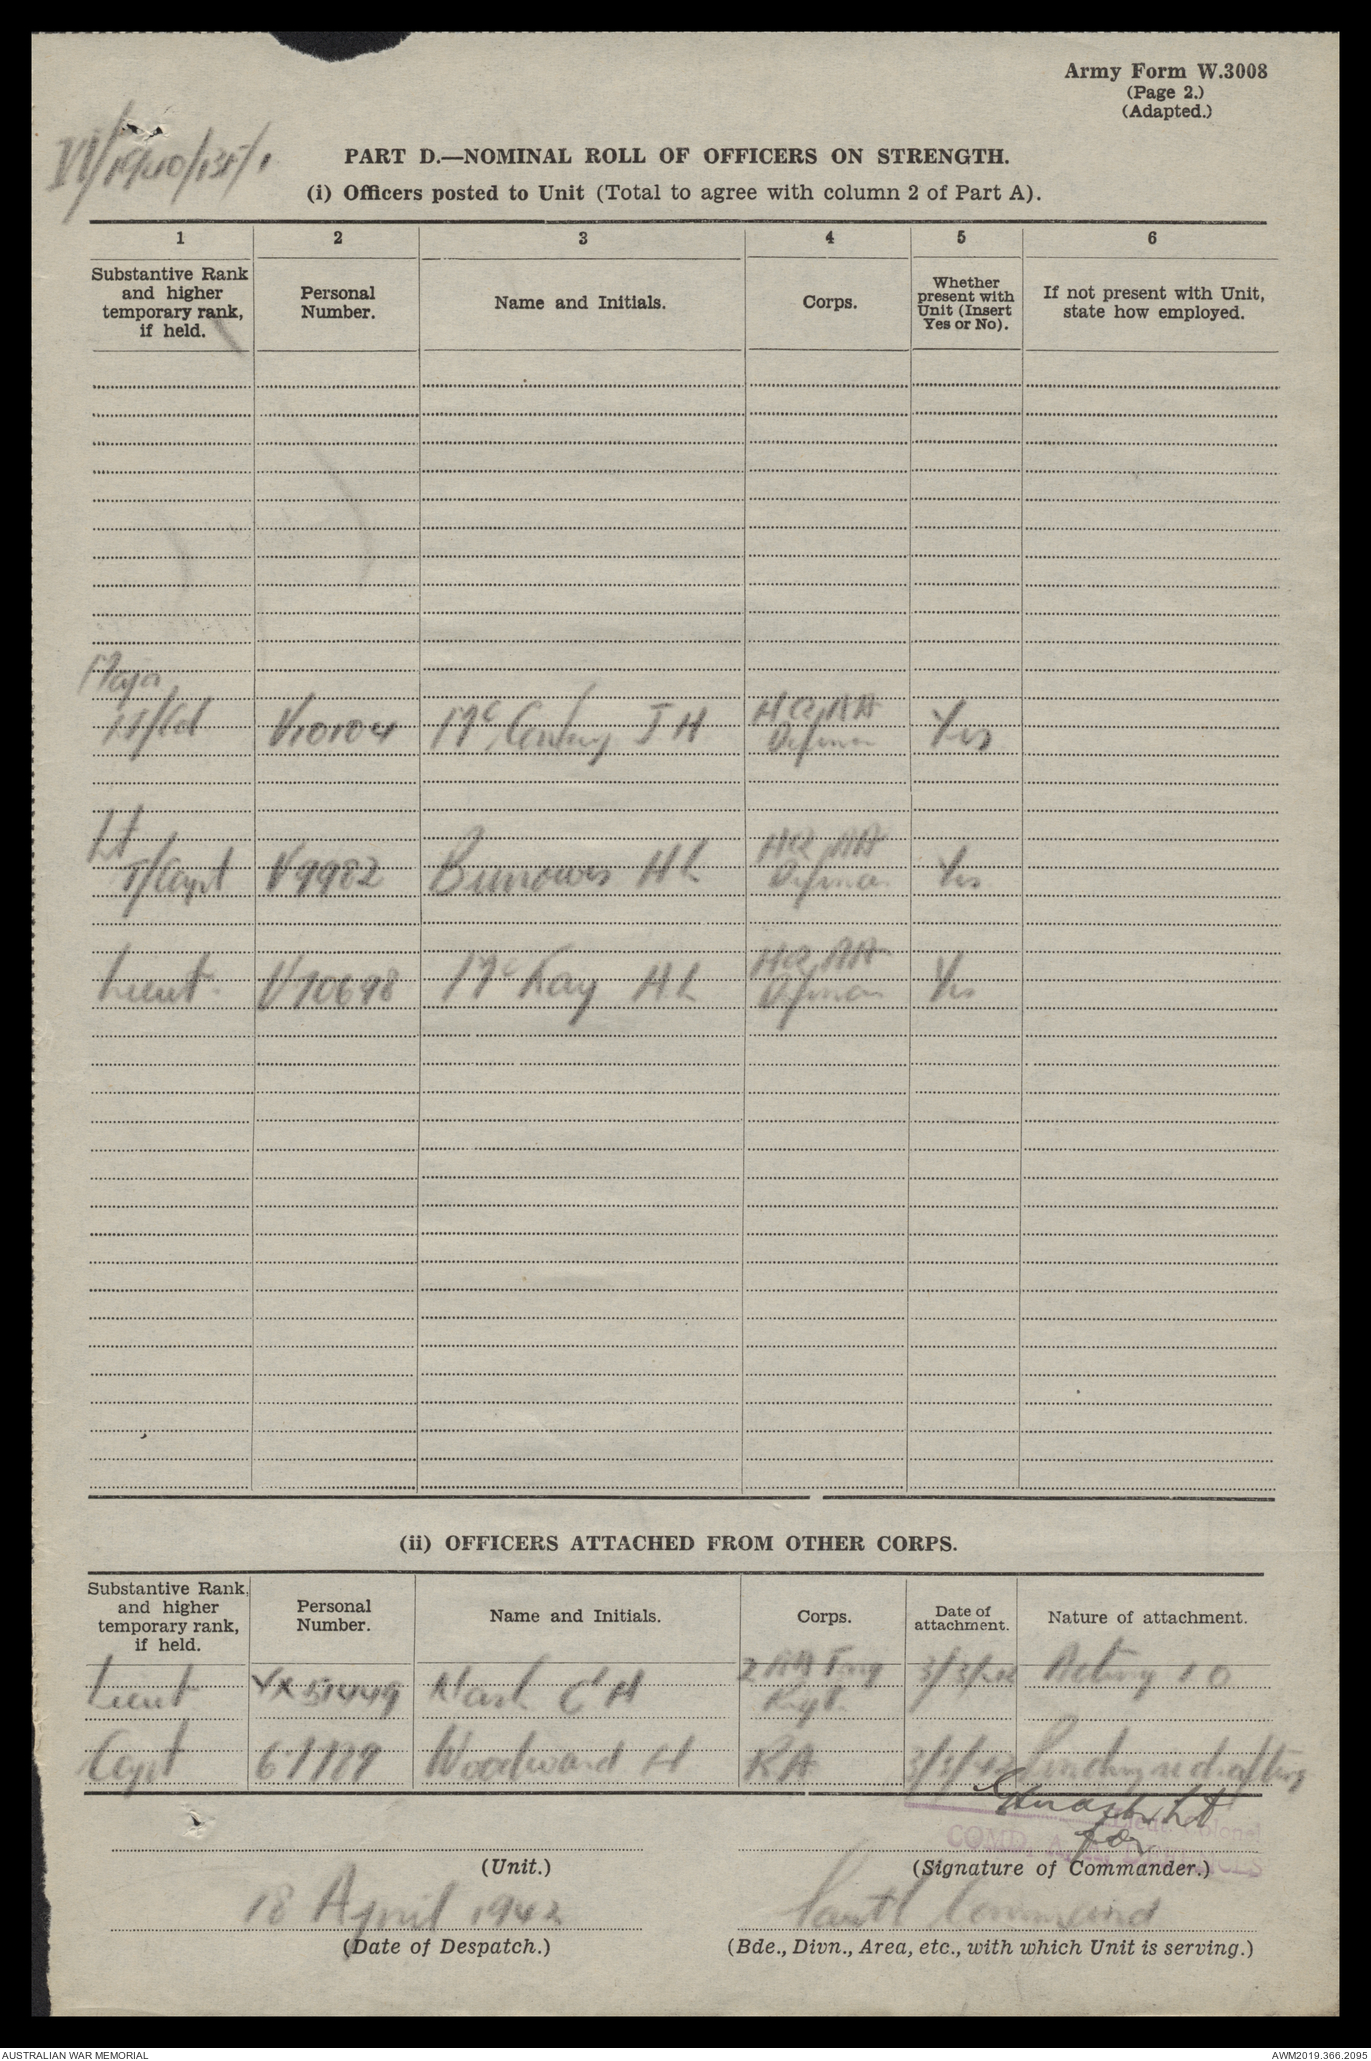 Army Form W.3008
(Page 2.)
(Adapted.)
PART D.—NOMINAL ROLL OF OFFICERS ON STRENGTH.
(i) Officers posted to Unit (Total to agree with column 2 of Part A).
1 2 3 4 5 6
Substantive Rank and higher temporary rank, if held. Personal Number. Name and Initials. Corps. Whether present with Unit (Insert Yes or No). If not present with Unit, state how employed.
Major
V10104 J H HQ AA Yes
Lt
T/Capt V9982 Burrows H L HQ AA Yes
Lieut. V70698 McKay H L HQ AA Yes
(ii) OFFICERS ATTACHED FROM OTHER CORPS.
Substantive Rank, and higher temporary rank, if held. Personal Number. Name and Initials. Corps. Date of attachment. Nature of attachment.
Lieut VX51449 Nash C H 2 AA Trng Regt. 3/3/42 Acting I O
Capt Woodward H RA 3/3/42
Lieut. Colonel
for
COMD. A.A. DEFENCES
(Unit.) (Signature of Commander.)
18 April 1942 Command
(Date of Despatch.) (Bde., Divn., Area, etc., with which Unit is serving.)
AUSTRALIAN WAR MEMORIAL AWM2019.366.2095